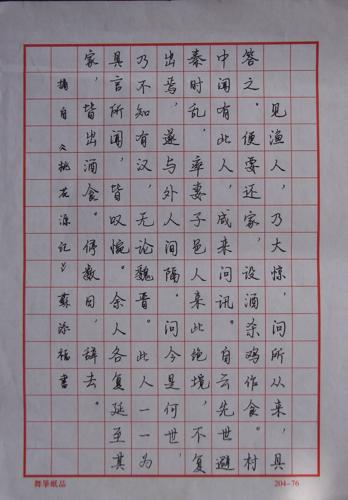 见渔人，乃大惊，问所从来，具
答之。便要还家，设酒杀鸡作食。村
中闻有此人，咸来问讯。自云先世避
秦时乱，率妻子邑人来此绝境，不复
出焉，遂与外人间隔。问今是何世，
乃不知有汉，无论魏晋。此人一一为
具言所闻，皆叹惋。余人各复延至其
家，皆出酒食。停数日，辞去。
摘自《桃花源记》蘇添福書
纸品
204-76